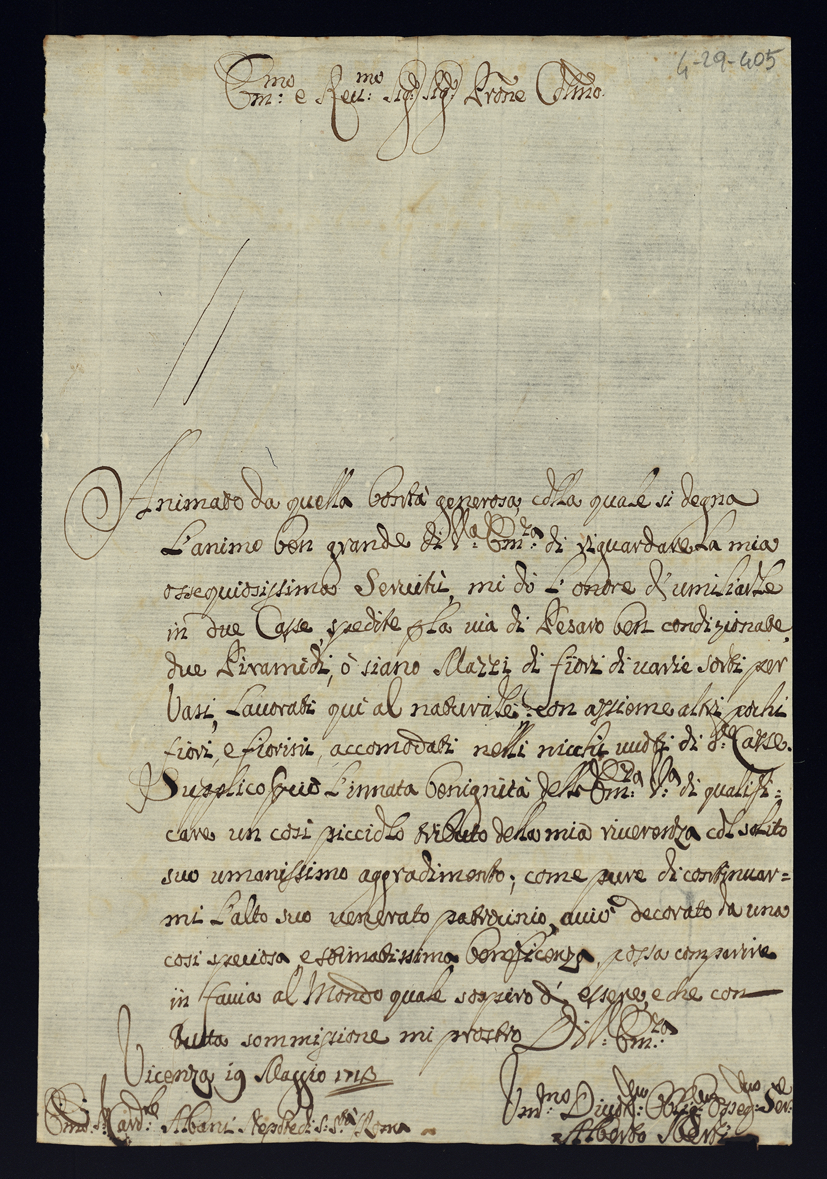 4-29-405
Em:mo e Reu:mo Sig:r Sig:r Prone Colmo
Animato dà quella bontà generosa, colla quale si degna
L'animo ben grande di V:a Em:za di riguardare la mia
ossequiosissima Servitù, mi dò l'onore d'umiliarle
in due Casse, spedite p la uia di Pesaro ben condizionate,
due Piramidi, ò siano Mazzi di fiori di uarie sorti per
Vasi, Lauorati qui al naturale, con assieme altri pochi
fiori, e fiorini, accomodati nelli nicchi uuoti di d:te Casse.
Supplico l'innata benignità dell' Em:za V:a di qualifi=
care un così picciolo tributo della mia riuerenza col solito
suo umanissimo aggradimento; come pure di continuar=
mi L'alto suo uenerato patrocinio, decorato da una
così speciosa, e stimatissima beneficenza, possa comparire
in faccia al Mondo quale sospiro d' essere, e che con
tutta sommissione mi prostro Di V: Em:za
Vicenza 19 Maggio 1713
Em:mo S:r Card:le Albani Nepote di S: S:tà Roma
Um:mo Diuot:mo Oblig:mo Osseq:mo Ser:re
Alberto